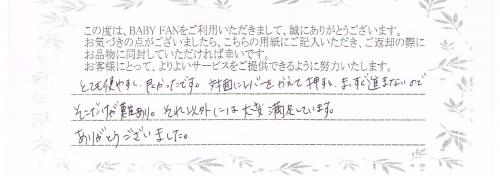 この度は、BABY FANをご利用いただきまして、誠にありがとうございます。
お気づきの点がございましたら、こちらの用紙にご記入いただき、ご返却の際に
お品物に同封していただければ幸いです。
お客様にとって、よりよいサービスをご提供できるように努力いたします。
とても使いやすく、良かったです。対面にレバーをかえて押すと、まっすぐ進まないので
そこだけが難あり。それ以外には大変満足しています。
ありがとうございました。